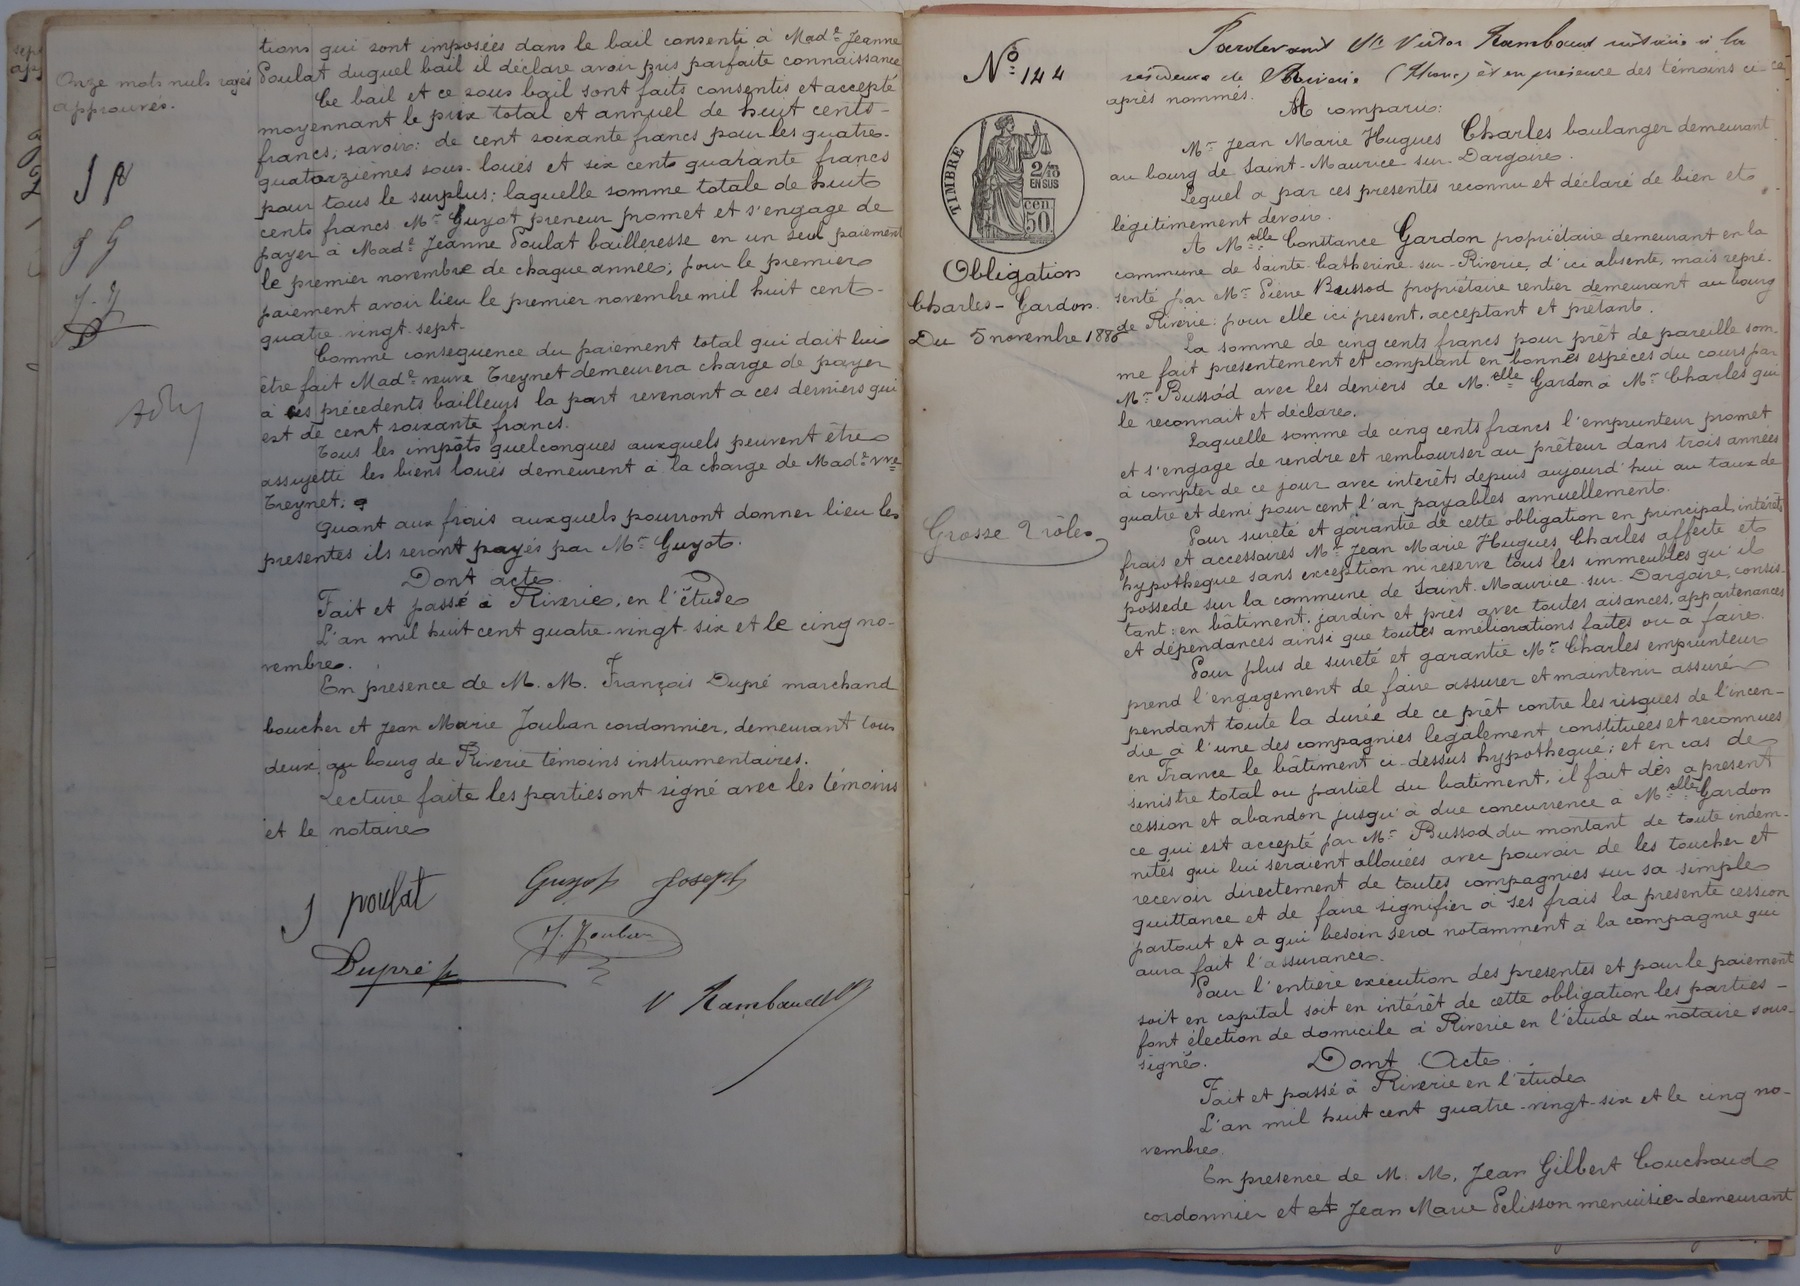 Onze mots nuls rayés
approuvés.
J P
J G
J. J
D
tions qui sont imposées dans le bail consenti à Mad.e Jeanne
Poulat duquel bail il déclare avoir pris parfaite connaissance
Ce bail et ce sous bail sont faits consentis et accepté
moyennant le prix total et annuel de huit cents-
francs, savoir: de cent soixante francs pour les quatre-
quatorzièmes sous-loués et six cent quarante francs
pour tous le surplus; laquelle somme totale de huit
cents francs Mr Guyot preneur promet et s'engage de
payer à Mad.e Jeanne Poulat bailleresse en un seul paiement
le premier novembre de chaque année; pour le premier
paiement avoir lieu le premier novembre mil huit cent-
quatre-vingt-sept.
Comme conséquence du paiement total qui doit lui
être fait Mad.e veuve Treynet demeurera charge de payer
à ses précédents bailleurs la part revenant à ces derniers qui
est de cent soixante francs.
Tous les impôts quelconques auxquels peuvent être
assujetti les biens loués demeurent à la charge de Mad.e vve
Treynet.
Quant aux frais auxquels pourront donner lieu les
presentes ils seront payés par Mr Guyot.
Dont acte.
Fait et passé à Riverie, en l'étude
L'an mil huit cent quatre-vingt-six et le cinq no-
vembre.
En presence de M. M. François Dupré marchand
boucher et Jean Marie Jouban cordonnier, demeurant tous
deux au bourg de Riverie témoins instrumentaires.
Lecture faite les parties ont signé avec les témoins
et le notaire
J poulat
Guyot Joseph
J. Jouban
Dupré
V Rambaud
No 144
TIMBRE
2/10
EN SUS
cen
50
Obligation
Charles-Gardon.
Du 5 novembre 1886
Grosse 2 rôles
Pardevant Me Victor Rambaud notaire à la
résidence de Riverie (Rhône) et en présence des témoins ci-
après nommés.
A comparu:
Mr Jean Marie Hugues Charles boulanger demeurant
au bourg de Saint-Maurice-sur-Dargoire.
Lequel a par ces présentes reconnu et déclaré de bien et
légitimement devoir.
A M.elle Constance Gardon propriétaire demeurant en la
commune de Sainte-Catherine-sur-Riverie, d'ici absente, mais repré-
senté par Mr Pierre Bussod propriétaire rentier demeurant au bourg
de Riverie: pour elle ici présent, acceptant et prêtant.
La somme de cinq cents francs pour prêt de pareille som-
me fait présentement et comptant en bonnes espèces du cours par
Mr Bussod avec les deniers de M.elle Gardon à Mr Charles qui
le reconnait et déclare.
Laquelle somme de cinq cents francs l'emprunteur promet
et s'engage de rendre et rembourser au prêteur dans trois années
à compter de ce jour avec intérêts depuis aujourd'hui au taux de
quatre et demi pour cent l'an payables annuellement.
Pour sureté et garantie de cette obligation en principal, intérêts
frais et accessoires Mr Jean Marie Hugues Charles affecte et
hypothèque sans exception ni réserve tous les immeubles qu'il
possede sur la commune de Saint-Maurice-sur-Dargoire, consis-
tant: en bâtiment, jardin et près avec toutes aisances, appartenances
et dépendances ainsi que toutes améliorations faites ou à faire.
Pour plus de sureté et garantie Mr Charles emprunteur
prend l'engagement de faire assurer et maintenir assuré
pendant toute la durée de ce prêt contre les risques de l'incen-
die à l'une des compagnies légalement constituées et reconnues
en France le bâtiment ci-dessus hypothéqué; et en cas de
sinistre total ou partiel du bâtiment, il fait dès à présent
cession et abandon jusqu'à due concurrence à M.elle Gardon
ce qui est accepté par Mr Bussod du montant de toute indem-
nités qui lui seraient allouées avec pouvoir de les toucher et
recevoir directement de toutes compagnies sur sa simple
quittance et de faire signifier à ses frais la présente cession
partout et a qui besoin sera notamment à la compagnie qui
aura fait l'assurance.
Pour l'entière exécution des présentes et pour le paiement
soit en capital soit en intérêt de cette obligation les parties-
font élection de domicile à Riverie en l'étude du notaire sous-
signé.
Dont Acte.
Fait et passé à Riverie en l'étude
L'an mil huit cent quatre-vingt-six et le cinq no-
vembre.
En présence de M. M. Jean Gilbert Couchoud
cordonnier et et Jean Marie Pelisson menuisier demeurant